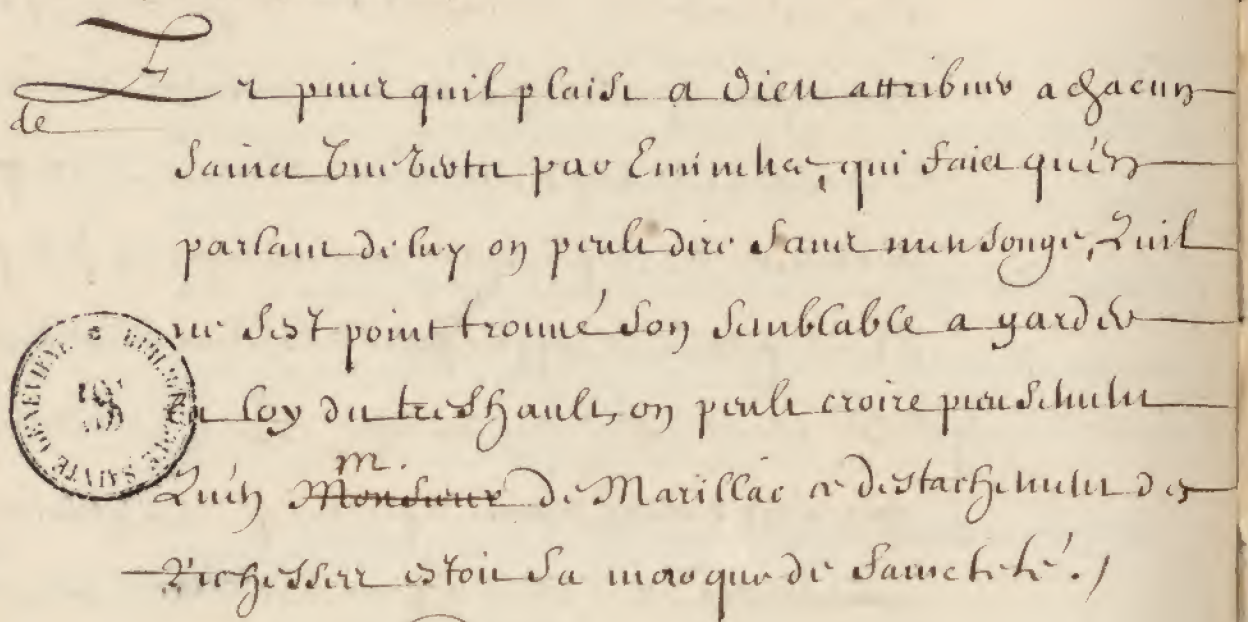 Et puis quil plaist a Dieu attribuer a chacun
de
Sainct une vertu par Eminence, qui faict qu'en
parlant de luy on peult dire sans mensonge, Quil
ne s'est point trouué son semblable a garder
la loy du tres hault, on peult croire pieusement
Qu'en M. Monsieur de Marillac ce destachement des
Richesses estoit sa marque de saincteté. /
BIBLIOTHEQUE SAINTE GENEVIEVE